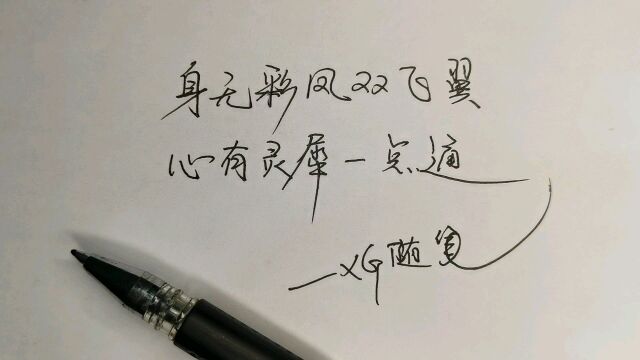 身无彩凤双飞翼
心有灵犀一点通
—XG随笔